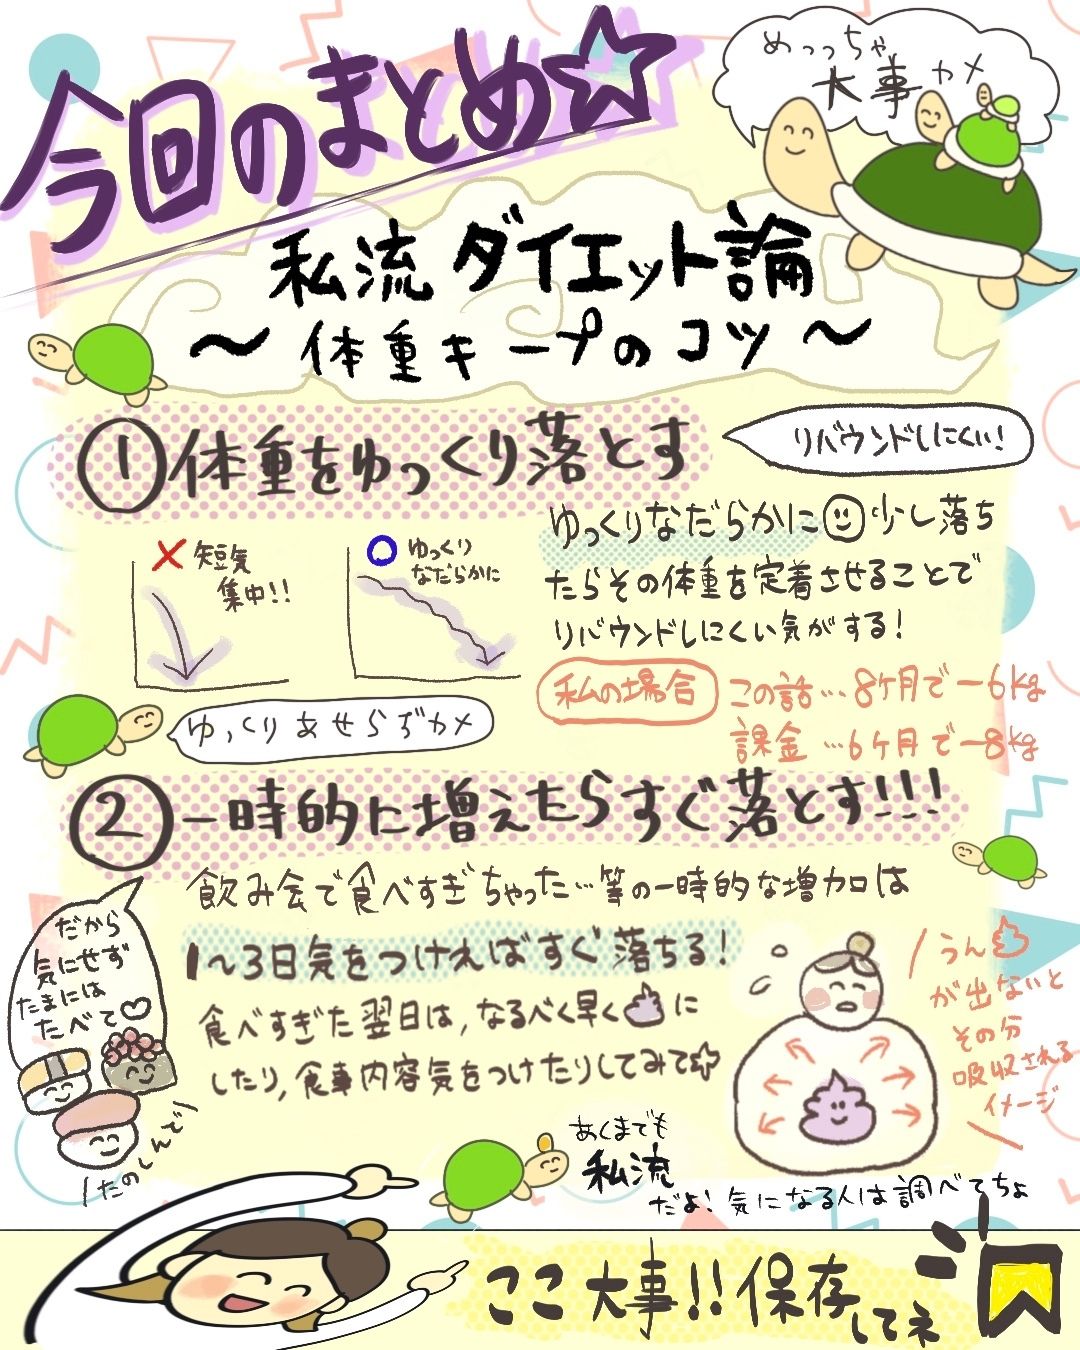 今回のまとめ☆
めっっちゃ
大事カメ
私流ダイエット論
〜体重キープのコツ〜
①体重をゆっくり落とす
リバウンドしにくい!
×短気
集中!!
○ゆっくり
なだらかに
ゆっくりなだらかに少し落ち
たらその体重を定着させることで
リバウンドしにくい気がする!
私の場合
この話…8ヶ月で−6kg
課金…6ヶ月で−8kg
ゆっくりあせらずカメ
②一時的に増えたらすぐ落とす!!!
飲み会で食べすぎちゃった…等の一時的な増加は
1〜3日気をつければすぐ落ちる!
食べすぎた翌日は,なるべく早く💩に
したり,食事内容気をつけたりしてみて☆
だから
気にせず
たまには
たべて♡
たのしんで
うん💩
が出ないと
その分
吸収される
イメージ
あくまでも
私流
だよ!気になる人は調べてちょ
ここ大事!!保存してネ